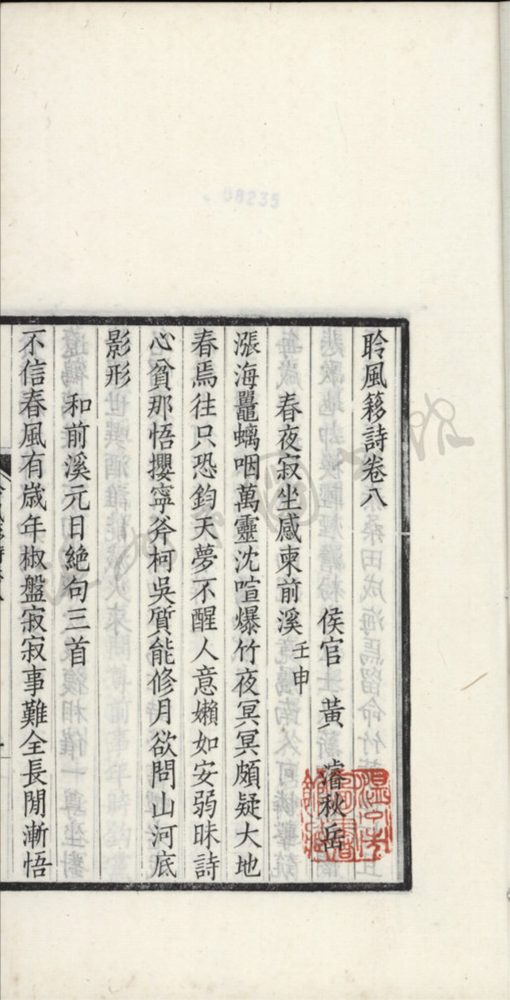 08235
聆風簃詩卷八
侯官 黃 濬秋岳
春夜寂坐感柬前溪壬申
漲海鼉螭咽萬靈沈喧爆竹夜冥冥頗疑大地
春焉往只恐鈞天夢不醒人意嬾如安弱昧詩
心貧那悟攖寧斧柯吳質能修月欲問山河底
影形
和前溪元日絕句三首
不信春風有歲年椒盤寂寂事難全長閒漸悟